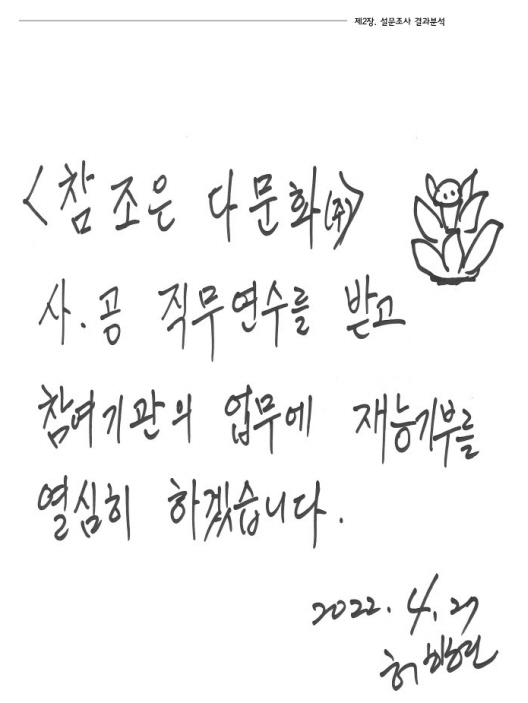 제2장. 설문조사 결과분석
<참 조은 다문화㈜>
사.공 직무연수를 받고
참여기관의 업무에 재능기부를
열심히 하겠습니다.
2022. 4. 27
허